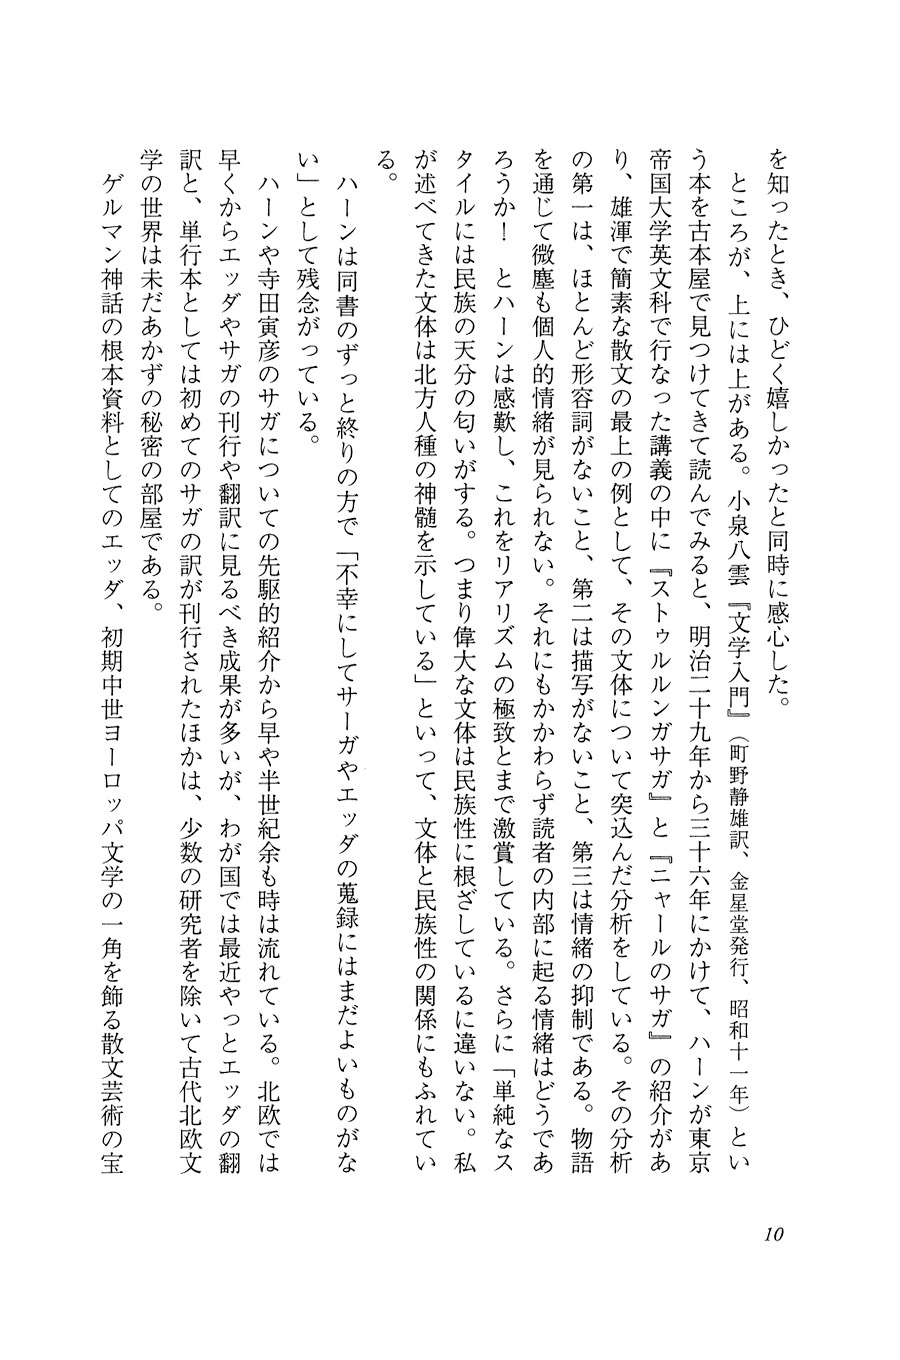 を知ったとき、ひどく嬉しかったと同時に感心した。
ところが、上には上がある。小泉八雲『文学入門』（町野静雄訳、金星堂発行、昭和十一年）とい
う本を古本屋で見つけてきて読んでみると、明治二十九年から三十六年にかけて、ハーンが東京
帝国大学英文科で行なった講義の中に『ストゥルルンガサガ』と『ニャールのサガ』の紹介があ
り、雄渾で簡素な散文の最上の例として、その文体について突込んだ分析をしている。その分析
の第一は、ほとんど形容詞がないこと、第二は描写がないこと、第三は情緒の抑制である。物語
を通じて微塵も個人的情緒が見られない。それにもかかわらず読者の内部に起る情緒はどうであ
ろうか！　とハーンは感歎し、これをリアリズムの極致とまで激賞している。さらに「単純なス
タイルには民族の天分の匂いがする。つまり偉大な文体は民族性に根ざしているに違いない。私
が述べてきた文体は北方人種の神髄を示している」といって、文体と民族性の関係にもふれてい
る。
ハーンは同書のずっと終りの方で「不幸にしてサーガやエッダの蒐録にはまだよいものがな
い」として残念がっている。
ハーンや寺田寅彦のサガについての先駆的紹介から早や半世紀余も時は流れている。北欧では
早くからエッダやサガの刊行や翻訳に見るべき成果が多いが、わが国では最近やっとエッダの翻
訳と、単行本としては初めてのサガの訳が刊行されたほかは、少数の研究者を除いて古代北欧文
学の世界は未だあかずの秘密の部屋である。
ゲルマン神話の根本資料としてのエッダ、初期中世ヨーロッパ文学の一角を飾る散文芸術の宝
10